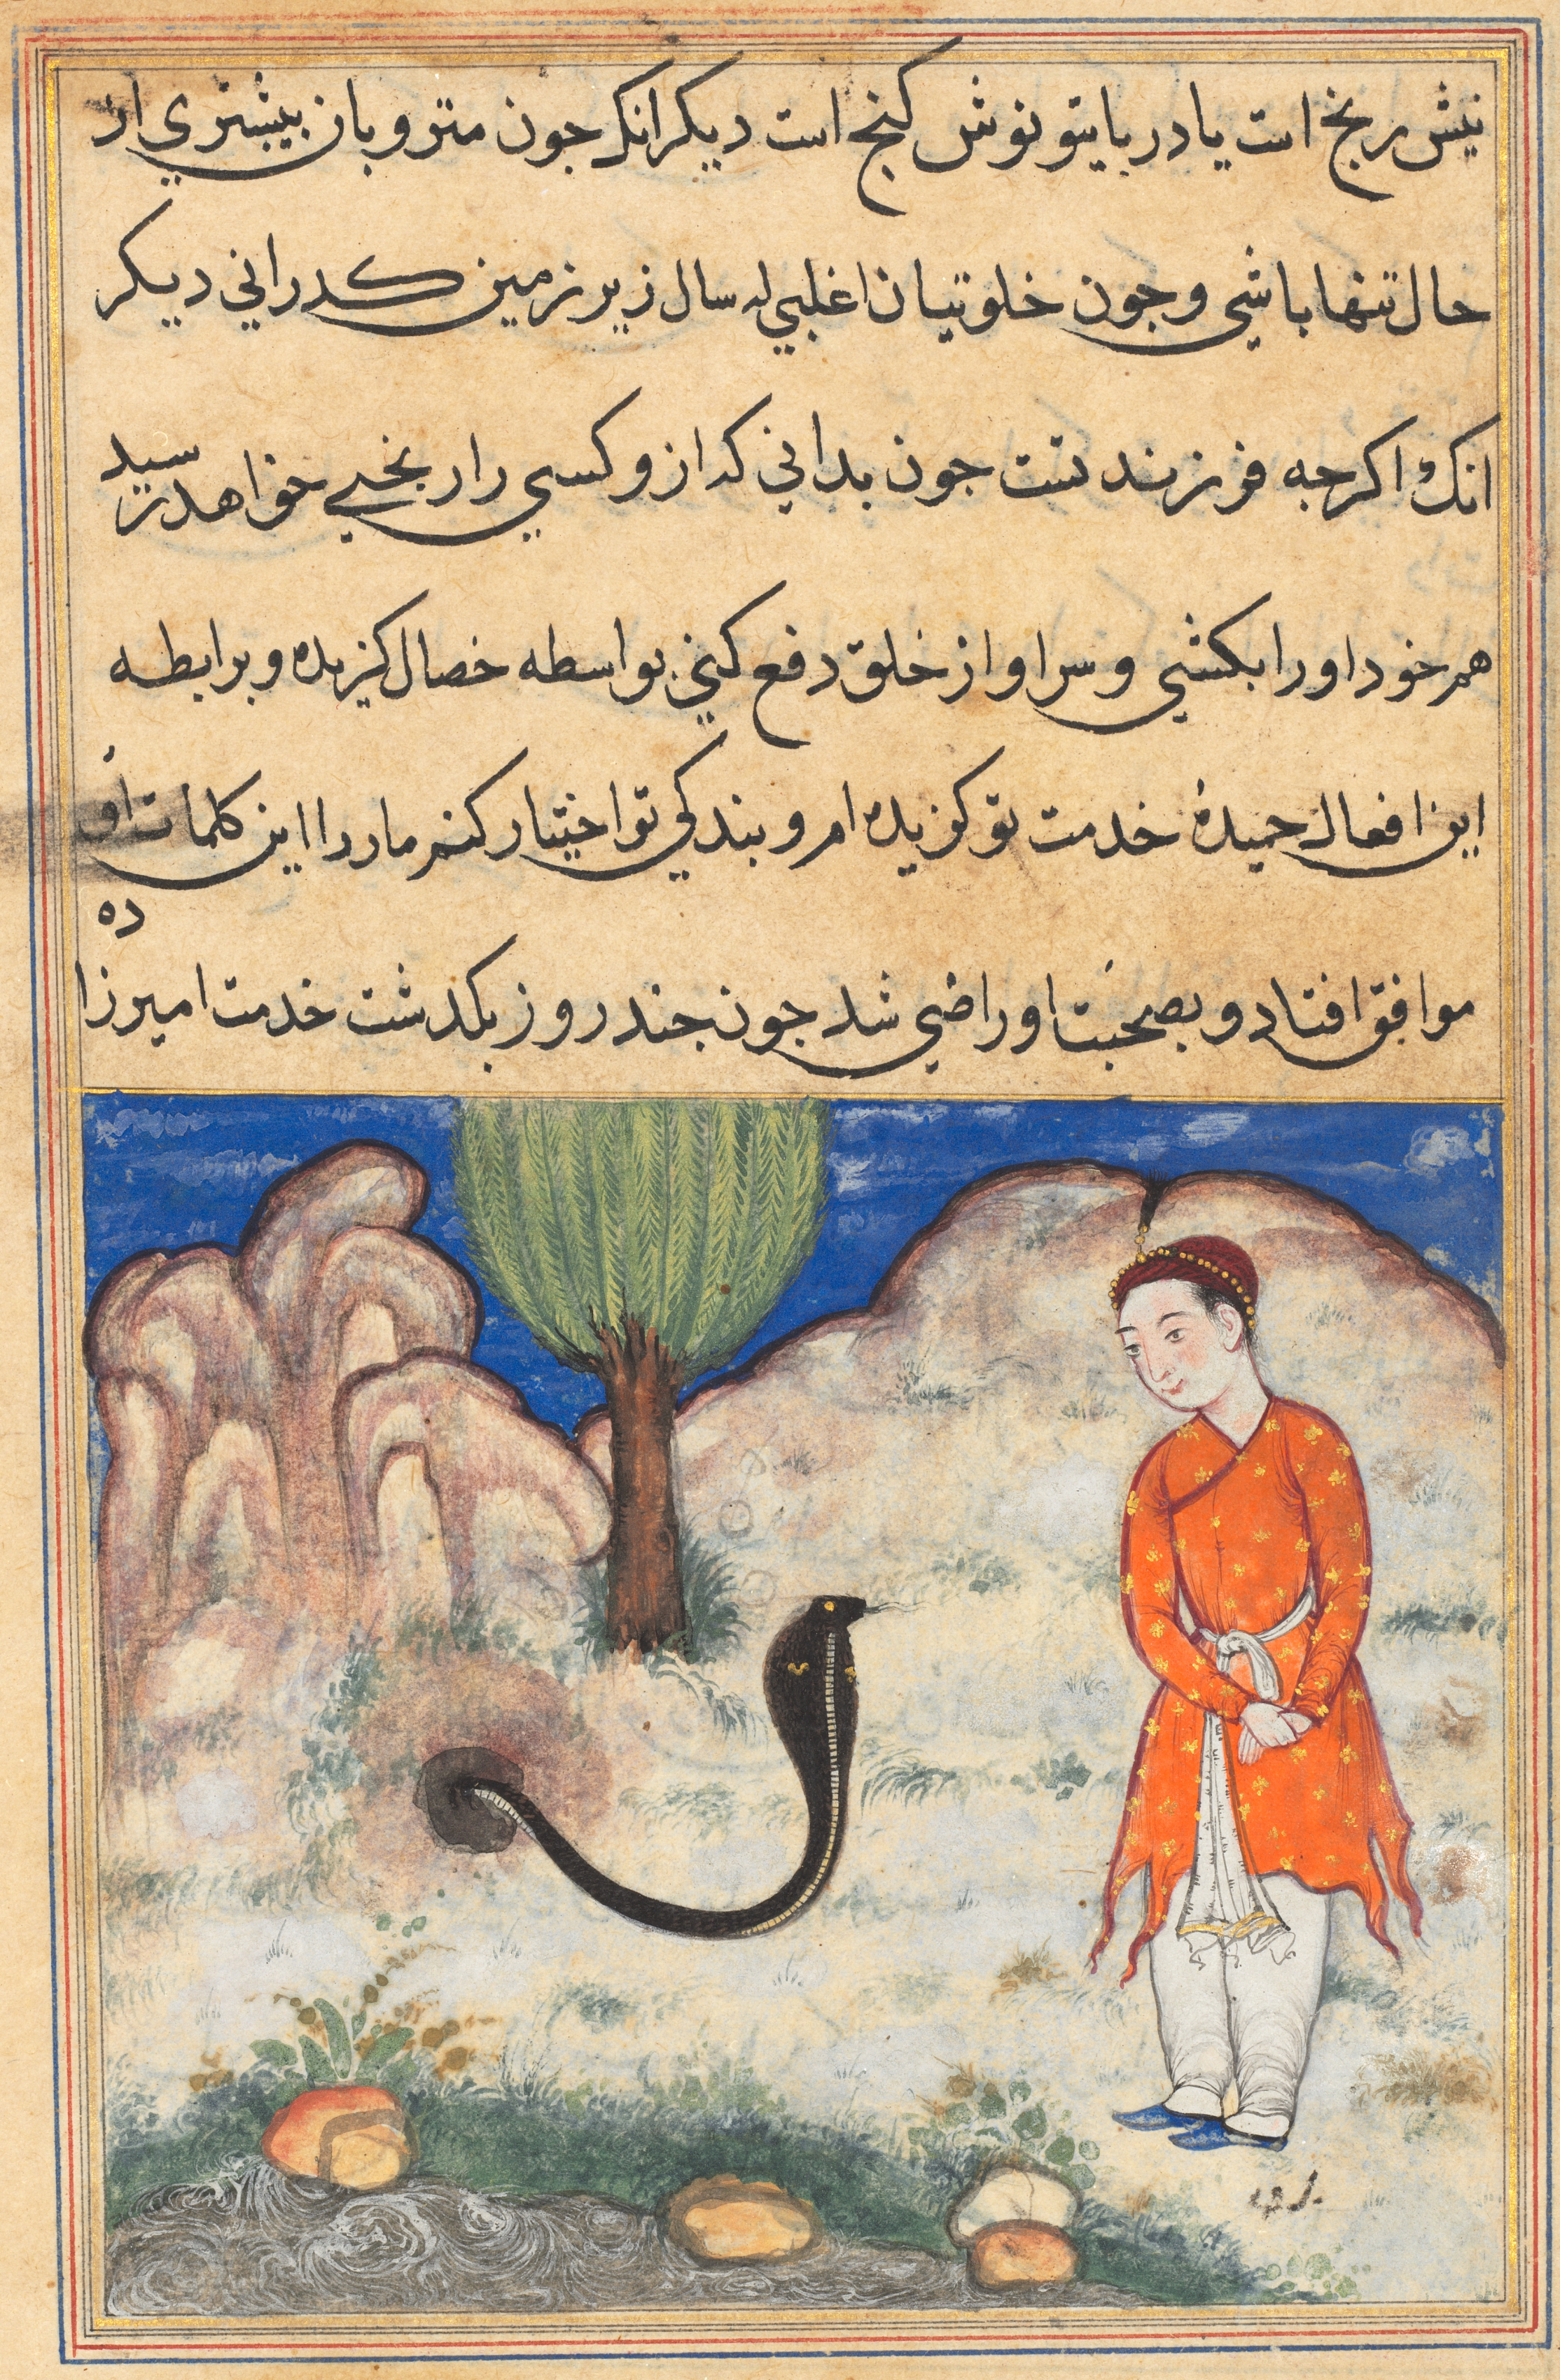 نیش رنج است یا در بایتو نوش کنج است دیکر انک جون متر و بان بیشتری از
حال تنها باشی و جون خلوتیان اغلبی له سال زیر زمین کدرانی دیکر
انک اکرجه فرزند تست جون بدانی که ازو کسی را رنجی خواهد رسید
هم خود اورا بکشی و سر او از خلق دفع کنی بواسطه خصال کزیده و برابطه
این افعال حمیده خدمت تو کزیده ام و بندکی تو اختیار کنم مار را این کلمات او
موافق افتاد و بصحبت او راضی شد جون جند روز بکدشت خدمت امیرزاده